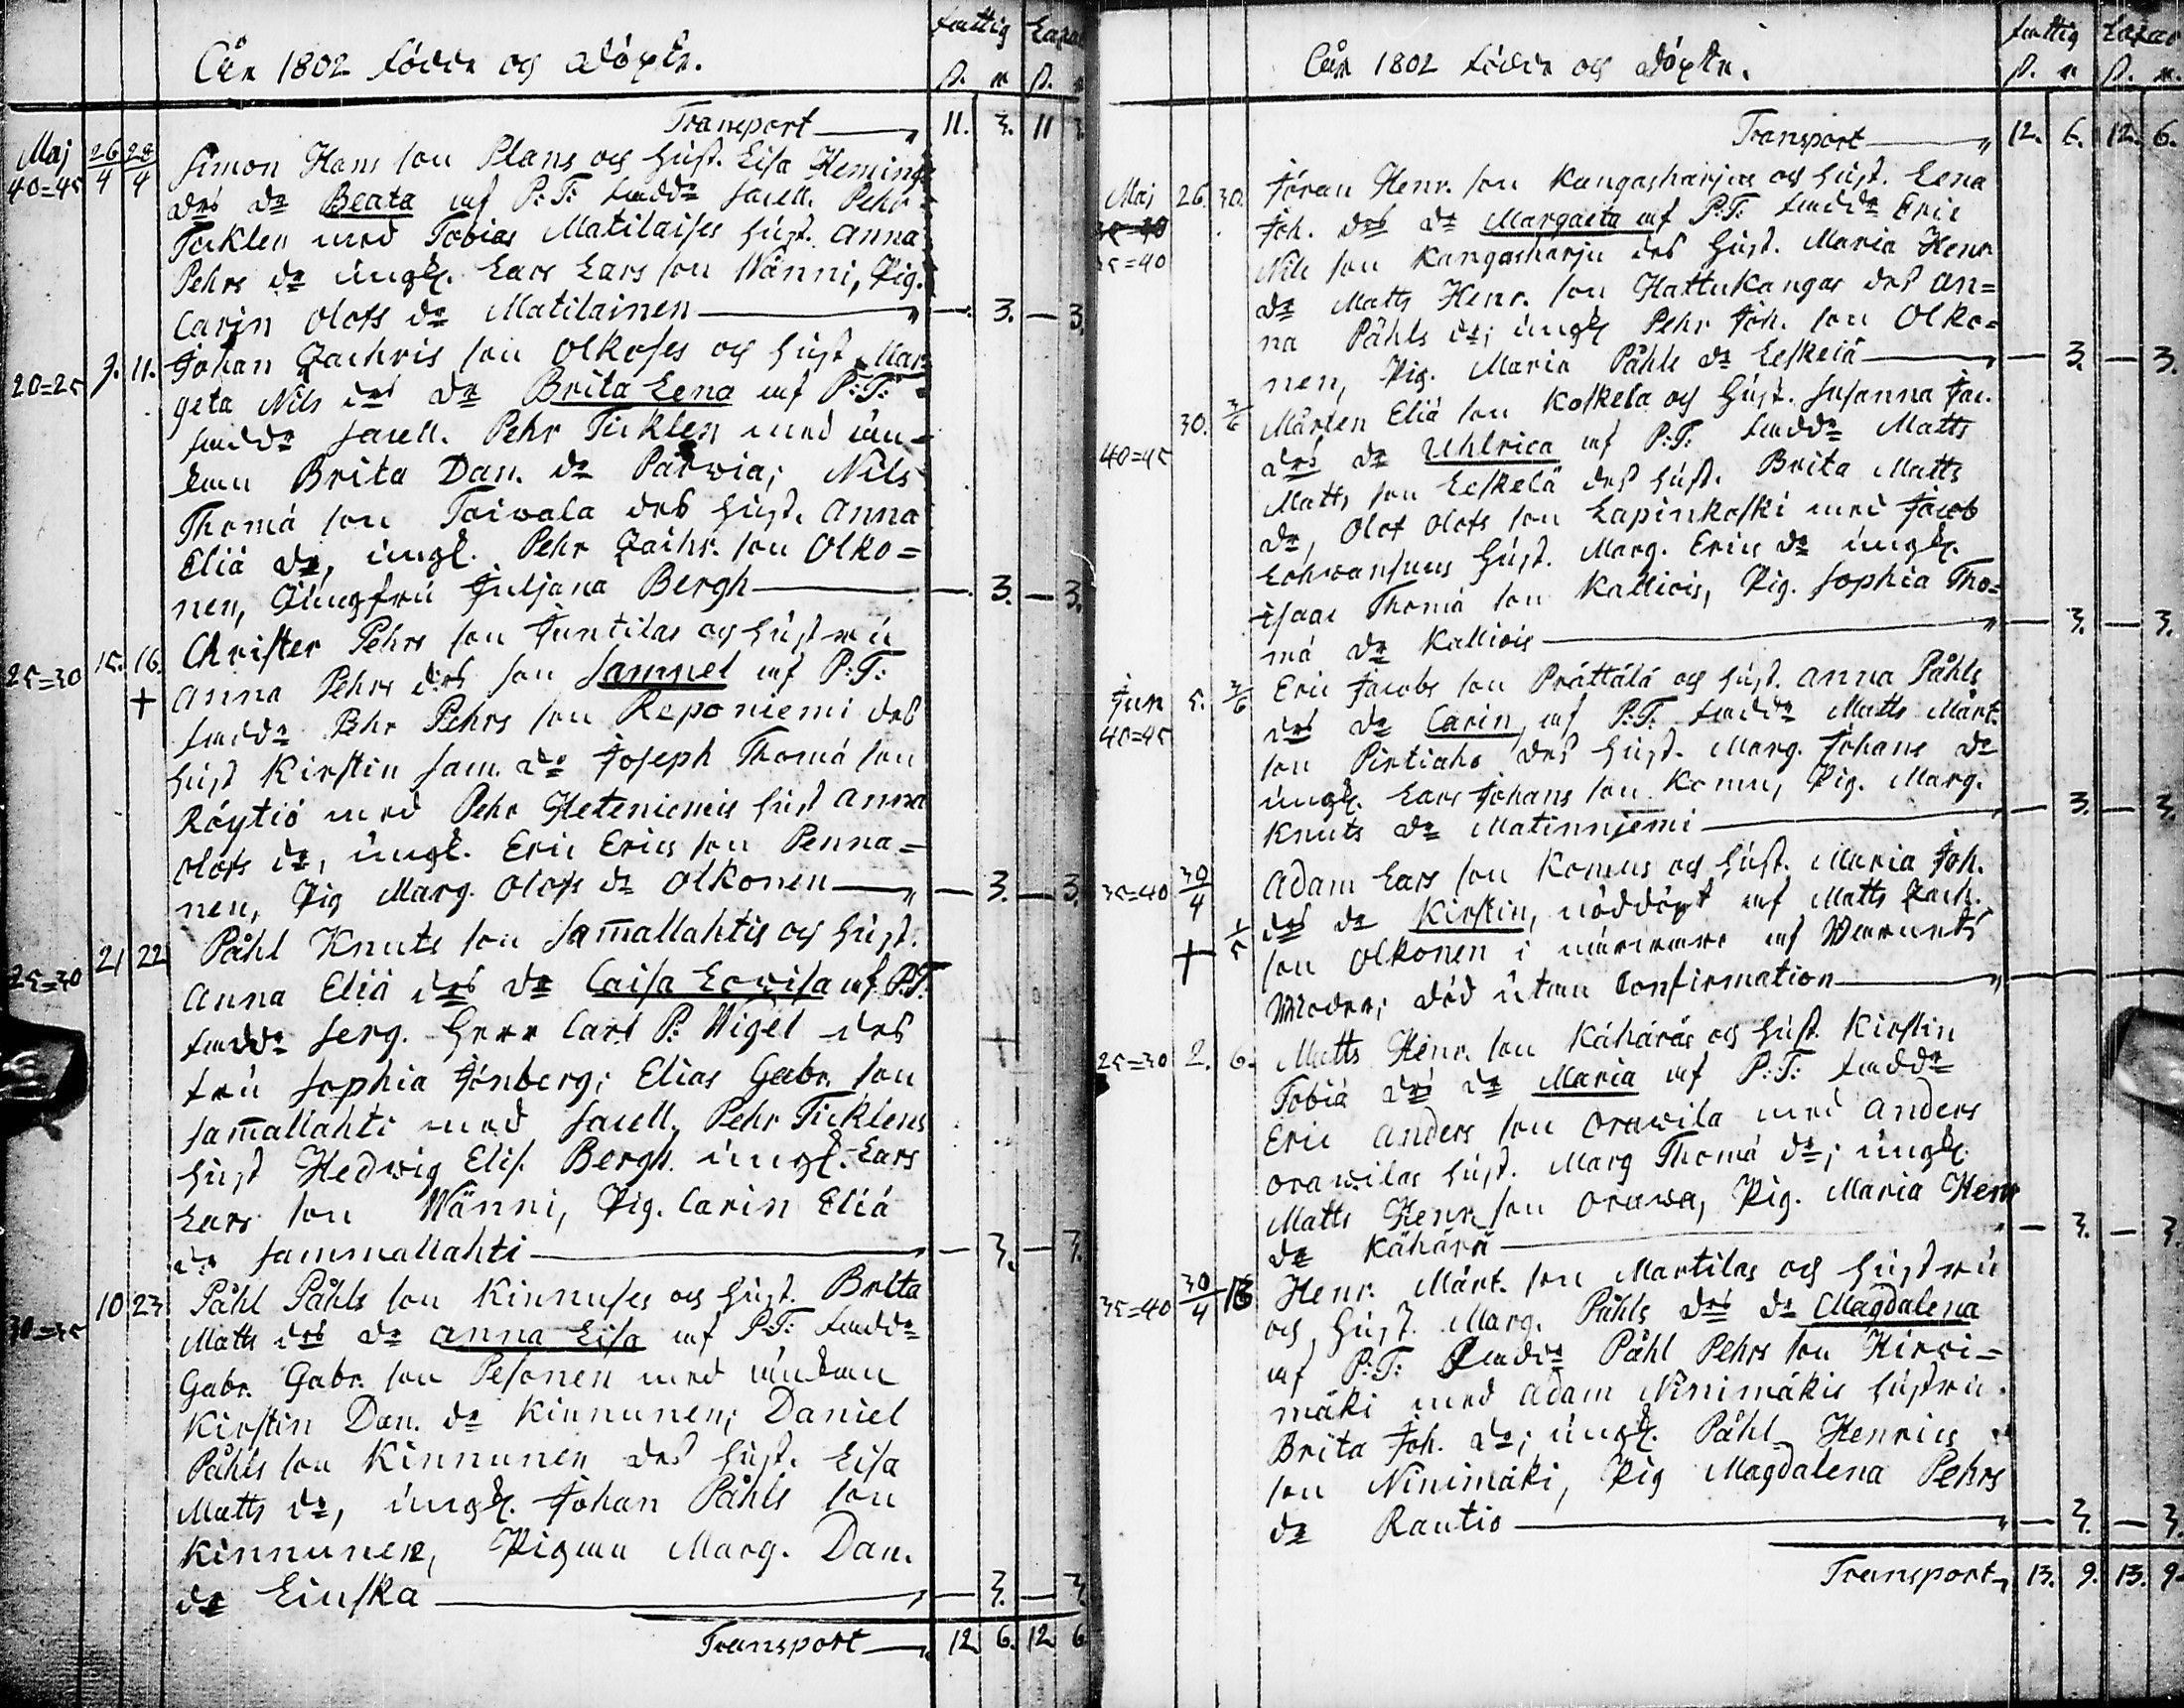 Åhr 1802 födde och döpte.
Fattig Lazar
ß. r ß. r
Transport 11. 3. 11 3
Maj 26/4 28/4 Simon Hans son Plans och hust. Lisa Heming
40=45 des dr Beata af P:T: fadd. Saell. Pehr
Ticklen med Tobias Matilaises hust. Anna
Pehrs dr ungk. Lars Lars son Wänni, Pig.
Carin Olofs dr Matilainen — 3. — 3.
20=25 9. 11. Johan Zachris son Olkoses och hust. Mar
geta Nils des dr Brita Lena af P:T:
fadd. Saell. Pehr Ticklen med
Brita Dan. dr Parwia; Nils
Thomä son Toiwala des hust. Anna
Eliä dr, ungk. Pehr Zachr. son Olko=
nen, Jungfru Juljana Bergh — 3. — 3.
25=30 15. 16. Christer Pehrs son Juntilas och hustru
+ Anna Pehrs des son Samuel af P:T:
fadd. Pehr Pehrs son Reponiemi des
hust Kirstin Sam. dr Joseph Thomä son
Röytiö med Pehr Heteniemis hust Anna
Olofs dr, ungk. Eric Erics son Penna=
nen, Pig Marg. Olofs dr Olkonen — 3. — 3.
25=30 21 22 Påhl Knuts son Sam̅allahtis och hust.
Anna Eliä des dr Caisa Lovisa af P.T.
fadd. Serg. Herr Carl P: Wigel des
fru Sophia Fönberg; Elias Gabr. son
Sam̅allahti med Saell. Pehr Ticklens
hust Hedwig Elis. Bergh. ungk. Lars
Lars son Wänni, Pig. Carin Eliä
dr Sammallahti — 3. — 3.
30=35 10 23 Påhl Påhls son Kinnuses och hust. Brita
Matts des dr Anna Lisa af P:T: fadd.
Gabr. Gabr. son Pesonen med
Kirstin Dan. dr Kinnunen; Daniel
Påhls son Kinnunen des hust. Lisa
Matts dr, ungk. Johan Påhls son
Kinnunen, Pigan Marg. Dan.
dr Liuska — 3. — 3.
Transport 12. 6. 12. 6
Åhr 1802 födde och döpte.
Fattig Lazar
ß. r ß. r.
Transport 12. 6. 12. 6.
Maj 26. 30. Jöran Henr. son Kangasharjus och hust. Lena
35=40 Joh. des dr Margaeta af P:T: fadd. Eric
Nils son Kangasharju des hust. Maria Henr
dr Matts Henr. son Hattukangas des An=
na Påhls dr; ungk Pehr Joh. son Olko=
nen, Pig. Maria Påhls dr Leskelä — 3. — 3.
30. 3/6 Mårten Eliä son Koskela och hust. Susanna Jac.
40=45 des dr Uhlrica af P:T: fadd. Matts
Matts son Leskelä des hust. Brita Matts
dr, Olof Olofs son Lapinkoski med Jacob
Lohwansuus hust. Marg. Erics dr ungk.
Isaac Thomä son Kalliois, Pig. Sophia Tho=
mä dr Kalliois — 3. — 3.
Jun 5. 3/6 Eric Jacobs son Prättälä och hust. Anna Påhls
40=45 des dr Carin, af P:T. fadd. Matts Mårt.
son Pirtiaho des hust. Marg. Johans dr
ungk. Lars Johans son Komu, Pig. Marg.
Knuts dr Matinniemi — 3. — 3.
35=40 30/4 Adam Lars son Komus och hust. Maria Joh.
1/5 des dr Kirstin, nöddöpt af Matts Zach.
+ son Olkonen i närwaro af Barnets
Moder; död utan Confirmation
25=30 2. 6. Matts Henr. son Kähäräs och hust. Kirstin
Tobiä des dr Maria af P:T: fadd.
Eric Anders son Orawila med Anders
Orawilas hust. Marg Thomä dr; ungk.
Matts Henr son Orawa, Pig. Maria Henr
dr Kähärä — 3. — 3.
35=40 30/4 Henr. Mårt. son Martilas och hustru
och hust. Marg. Påhls des dr Magdalena
af P:T: fadd. Påhl Pehrs son Hirvi=
mäki med Adam Ninimäkis hustru.
Brita Joh. dr; ungk. Påhl Henrics
son Ninimäki, Pig Magdalena Pehrs
dr Rautio — 3. — 3
Transport 13. 9. 13. 9.